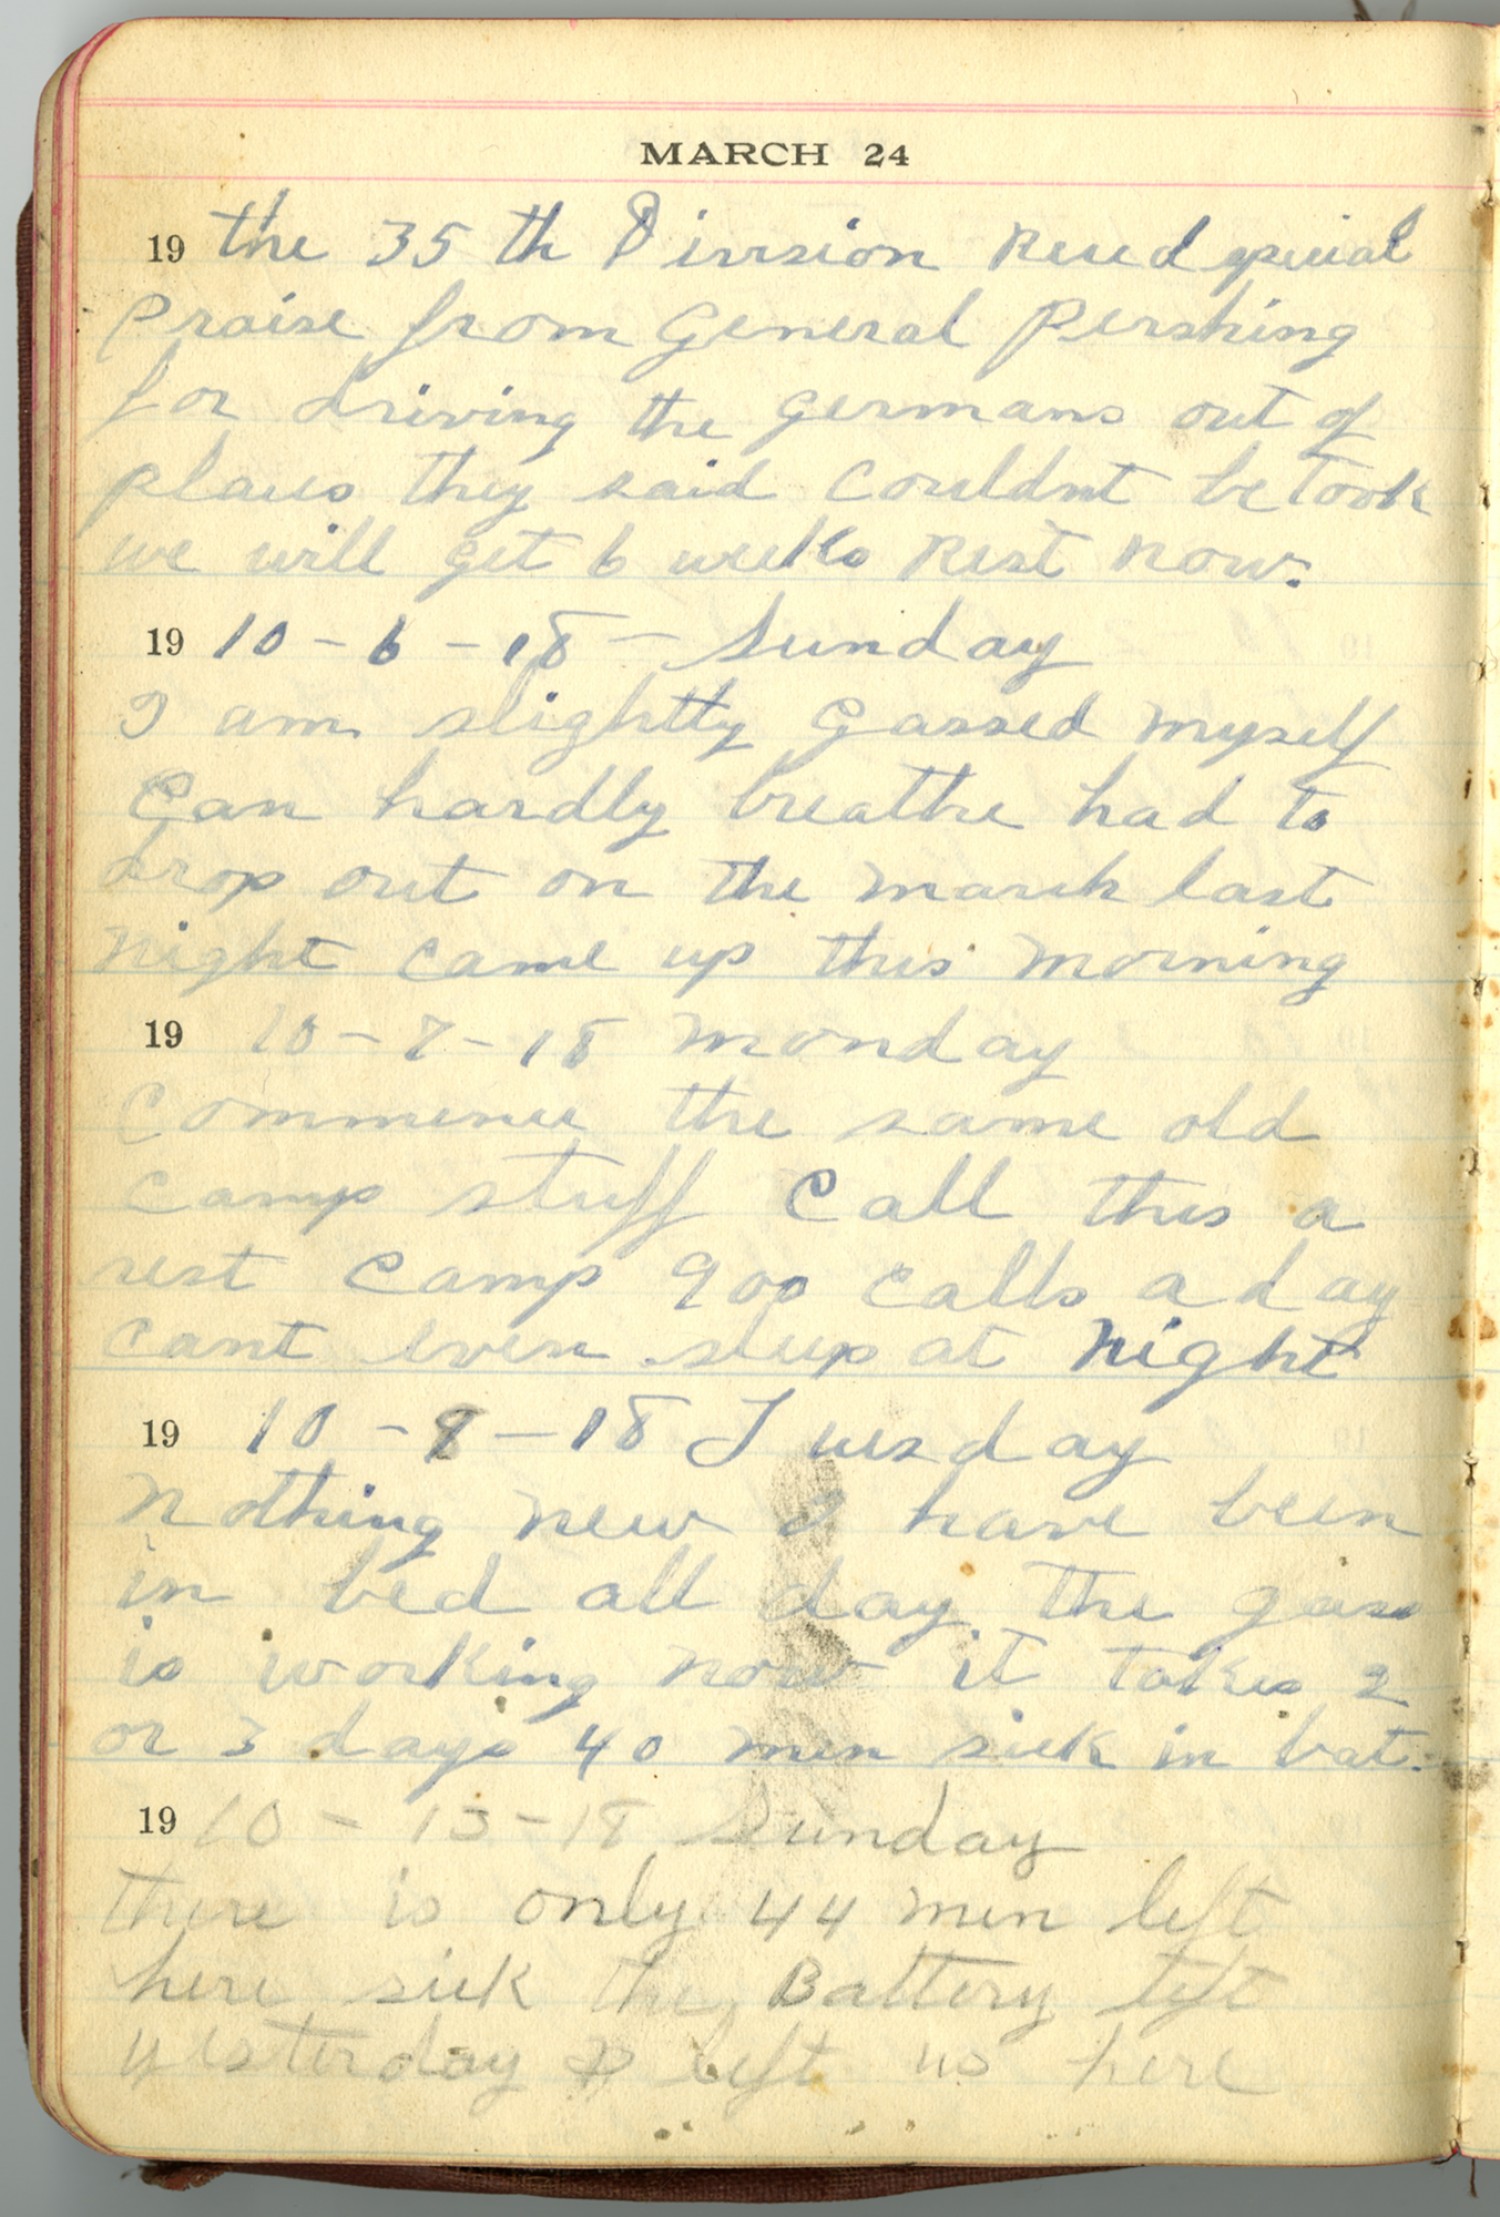 MARCH 24
19 the 35th Division Recd special
praise from General Pershing
for driving the germans out of
places they said couldnt be took
we will get 6 weeks Rest now.
19 10-6-18 - Sunday
I am slightly gassed myself
Can hardly breathe had to
drop out on the march last
night came up this morning
19 10-7-18 monday
Commence the same old
camp stuff Call this a
rest Camp 900 calls a day
cant even sleep at Night
19 10-8-18 Tuesday
Nothing new I have been
in bed all day the gass
is working now it takes 2
or 3 days 40 men sick in bat.
19 10-13-18 Sunday
there is only 44 men left
here sick the Battery left
yesterday & left us here